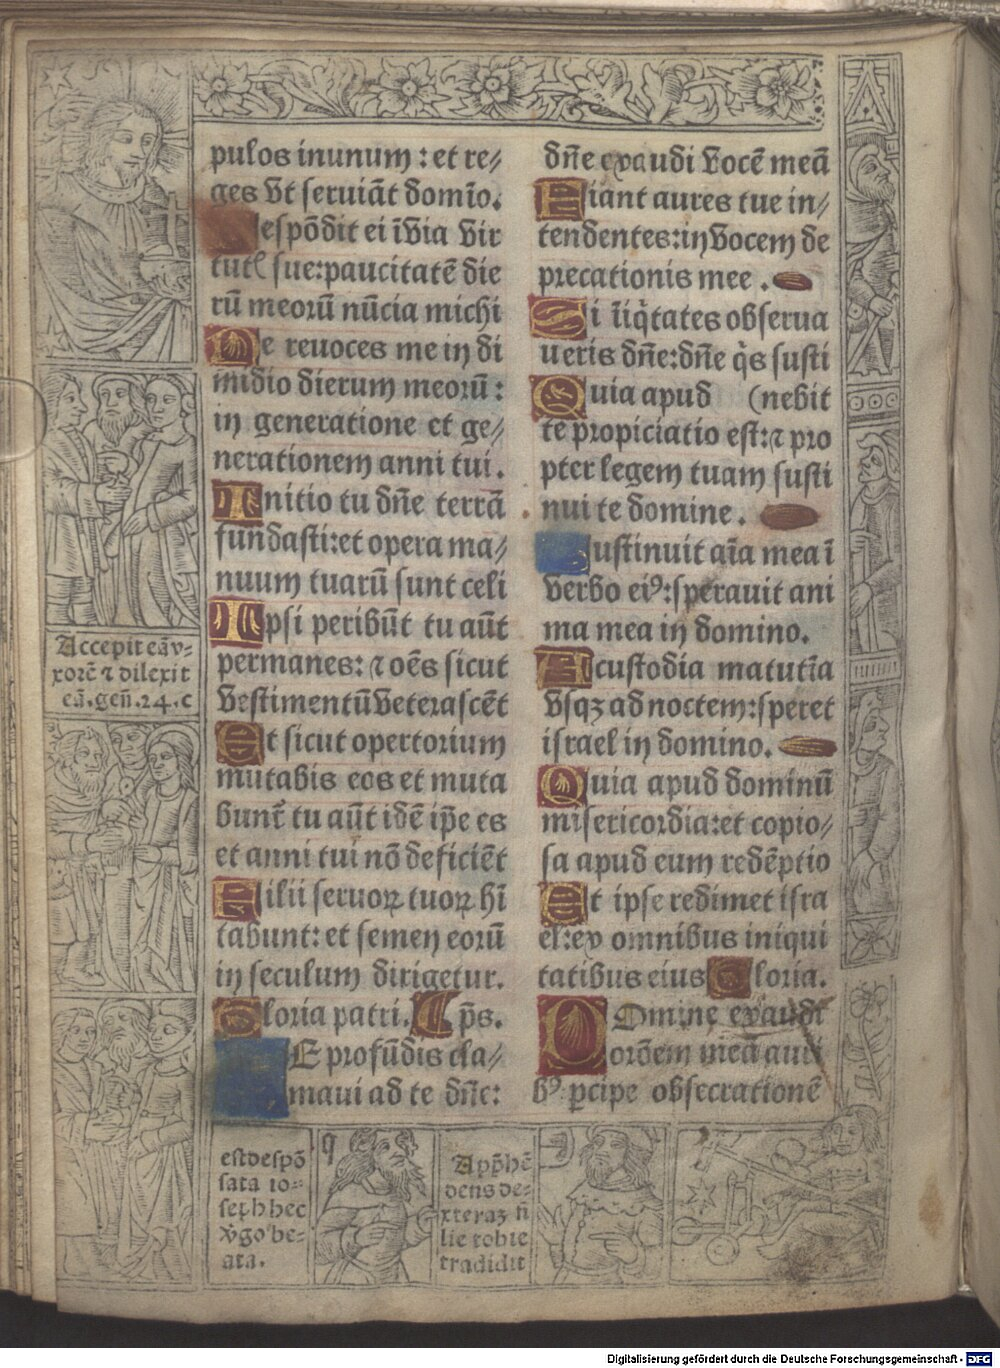 pulos inunum : et re⸗
ges vt seruiāt domīo.
espōdit ei īvia vir
tutꝭ sue:paucitatē die
rū meorū nūcia michi
Ne reuoces me in di
midio dierum meorū :
in generatione et ge⸗
nerationem anni tui.
Initio tu dn̄e terrā
fundasti:et opera ma⸗
nuum tuarū sunt celi
Ipsi peribūt tu aūt
permanes: ⁊ oēs sicut
vestimentū veterascēt
Et sicut opertorium
mutabis eos et muta
bunt̄ tu aūt idē ip̄e es
et anni tui nō deficiēt
Filii seruoꝝ tuoꝝ hī
tabunt: et semen eorū
in seculum dirigetur.
Gloria patri. p̄s.
E profūdis cla⸗
maui ad te dn̄e:
dn̄e exaudi vocē meā
Fiant aures tue in⸗
tendentes:in vocem de
precationis mee .
Si īiq̄tates obserua
ueris dn̄e:dn̄e q̄s susti
Quia apud (nebit
te propiciatio est:⁊ pro
pter legem tuam susti
nui te domine.
ustinuit aīa mea ī
verbo eiꝰ:sperauit ani
ma mea in domino.
A custodia matutīa
vsqꝫ ad noctem:speret
israel in domino.
Quia apud dominū
misericordia:et copio⸗
sa apud eum redēptio
Et ipse redimet isra
el:ex omnibus iniqui
tatibus eius Gloria.
Domine exaudi
orōem meā auri
bꝰ ꝑcipe obsecrationē
Accepit eā v⸗
xorē ⁊ dilexit
eā.gen̄.24.c
est despō
sata io⸗
seph hec
v̄go be⸗
ata.
Appᵉhē
dens de⸗
xteraꝫ fi
lie tobie
tradidit
Digitalisierung gefördert durch die Deutsche Forschungsgemeinschaft - DFG